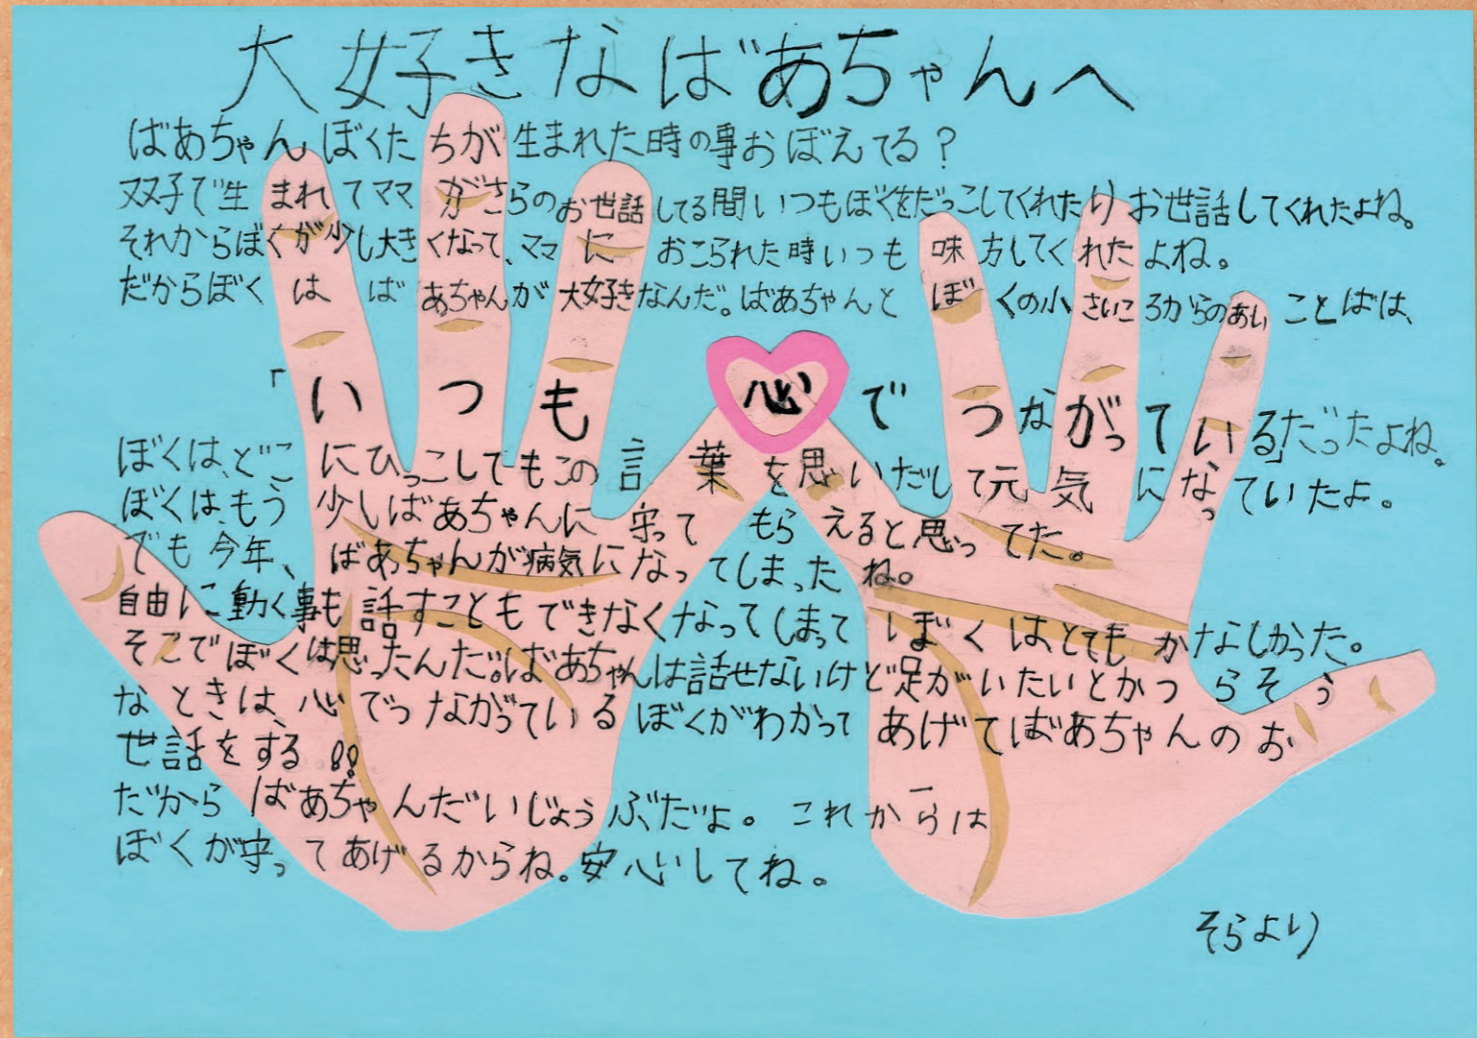 大好きなばあちゃんへ
ばあちゃんぼくたちが生まれた時の事おぼえてる?
双子で生まれてママがさらのお世話してる間いつもぼくをだっこしてくれたりお世話してくれたよね。
それからぼくが少し大きくなって、ママにおこられた時いつも味方してくれたよね。
だからぼくはばあちゃんが大好きなんだ。ばあちゃんとぼくの小さいころからのあいことばは、
「いつも心でつながっている」だったよね。
ぼくは、どこにひっこしてもこの言葉を思いだして元気になっていたよ。
ぼくは、もう少しばあちゃんに守ってもらえると思ってた。
でも今年、ばあちゃんが病気になってしまったね。
自由に動く事も話すこともできなくなってしまってぼくは、とてもかなしかった。
そこでぼくは思ったんだ。ばあちゃんは話せないけど足がいたいとかつらそう
なときは、心でつながっているぼくがわかってあげてばあちゃんのお
世話をする!!
だからばあちゃんだいじょうぶだよ。これからは
ぼくが守ってあげるからね。安心してね。
そらより